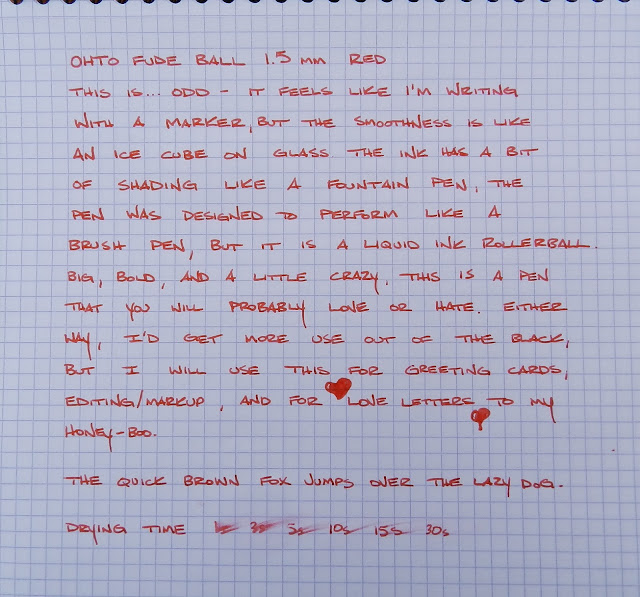 OHTO FUDE BALL 1.5 MM RED
THIS IS... ODD - IT FEELS LIKE I'M WRITING
WITH A MARKER, BUT THE SMOOTHNESS IS LIKE
AN ICE CUBE ON GLASS. THE INK HAS A BIT
OF SHADING LIKE A FOUNTAIN PEN, THE
PEN WAS DESIGNED TO PERFORM LIKE A
BRUSH PEN, BUT IT IS A LIQUID INK ROLLERBALL.
BIG, BOLD, AND A LITTLE CRAZY, THIS IS A PEN
THAT YOU WILL PROBABLY LOVE OR HATE. EITHER
WAY, I'D GET MORE USE OUT OF THE BLACK,
BUT I WILL USE THIS FOR GREETING CARDS,
EDITING/MARKUP, AND FOR LOVE LETTERS TO MY
HONEY-BOO.
THE QUICK BROWN FOX JUMPS OVER THE LAZY DOG.
DRYING TIME 1s 3s 5s 10s 15s 30s